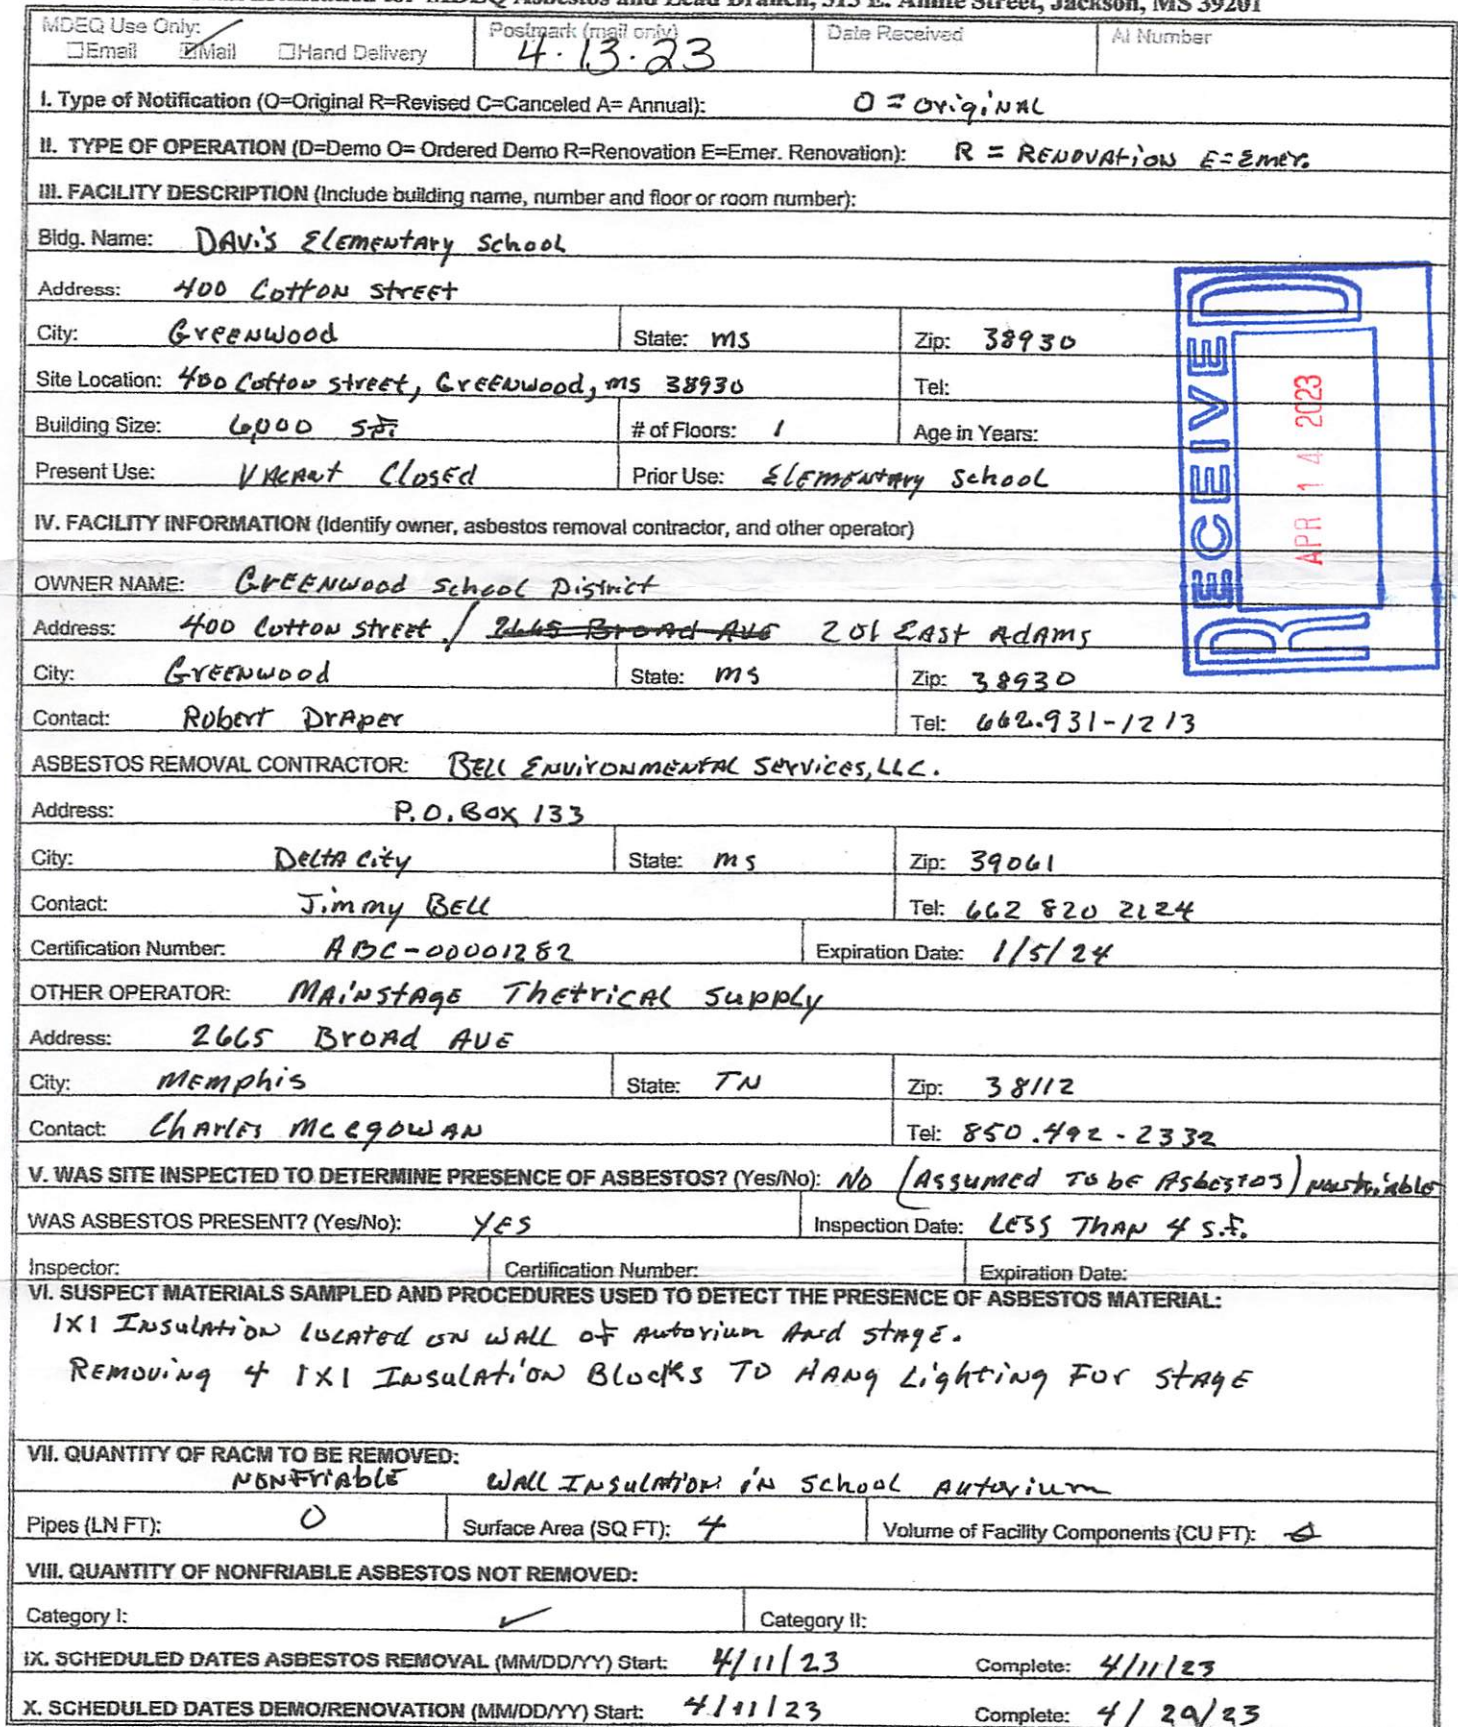 MDEQ Asbestos and Lead Branch, 515 E. Amite Street, Jackson, MS 39201
MDEQ Use Only: Postmark (mail only) Date Received AI Number
☐Email ☑Mail ☐Hand Delivery 4.13.23
I. Type of Notification (O=Original R=Revised C=Canceled A= Annual): O = Original
II. TYPE OF OPERATION (D=Demo O= Ordered Demo R=Renovation E=Emer. Renovation): R = Renovation E=Emer.
III. FACILITY DESCRIPTION (Include building name, number and floor or room number):
Bldg. Name: Davis Elementary School
Address: 400 Cotton Street
City: Greenwood State: MS Zip: 38930
Site Location: 400 Cotton Street, Greenwood, MS 38930 Tel:
Building Size: 6,000 S.F. # of Floors: 1 Age in Years:
Present Use: Vacant Closed Prior Use: Elementary School
RECEIVED
APR 14 2023
IV. FACILITY INFORMATION (Identify owner, asbestos removal contractor, and other operator)
OWNER NAME: Greenwood School District
Address: 400 Cotton Street / 2665 Broad Ave 201 East Adams
City: Greenwood State: MS Zip: 38930
Contact: Robert Draper Tel: 662.931-1213
ASBESTOS REMOVAL CONTRACTOR: Bell Environmental Services, LLC.
Address: P.O. Box 133
City: Delta City State: MS Zip: 39061
Contact: Jimmy Bell Tel: 662 820 2124
Certification Number: ABC-00001282 Expiration Date: 1/5/24
OTHER OPERATOR: Mainstage Thetrical Supply
Address: 2665 Broad Ave
City: Memphis State: TN Zip: 38112
Contact: Charles McEgowan Tel: 850.492-2332
V. WAS SITE INSPECTED TO DETERMINE PRESENCE OF ASBESTOS? (Yes/No): No (Assumed To be Asbestos) nonfriable
WAS ASBESTOS PRESENT? (Yes/No): Yes Inspection Date: Less Than 4 S.F.
Inspector: Certification Number: Expiration Date:
VI. SUSPECT MATERIALS SAMPLED AND PROCEDURES USED TO DETECT THE PRESENCE OF ASBESTOS MATERIAL:
1X1 Insulation located on wall of Autorium And stage.
Removing 4 1X1 Insulation Blocks To Hang Lighting For Stage
VII. QUANTITY OF RACM TO BE REMOVED:
Nonfriable Wall Insulation in School Autorium
Pipes (LN FT): 0 Surface Area (SQ FT): 4 Volume of Facility Components (CU FT):
VIII. QUANTITY OF NONFRIABLE ASBESTOS NOT REMOVED:
Category I: ✓ Category II:
IX. SCHEDULED DATES ASBESTOS REMOVAL (MM/DD/YY) Start: 4/11/23 Complete: 4/11/23
X. SCHEDULED DATES DEMO/RENOVATION (MM/DD/YY) Start: 4/11/23 Complete: 4/29/23